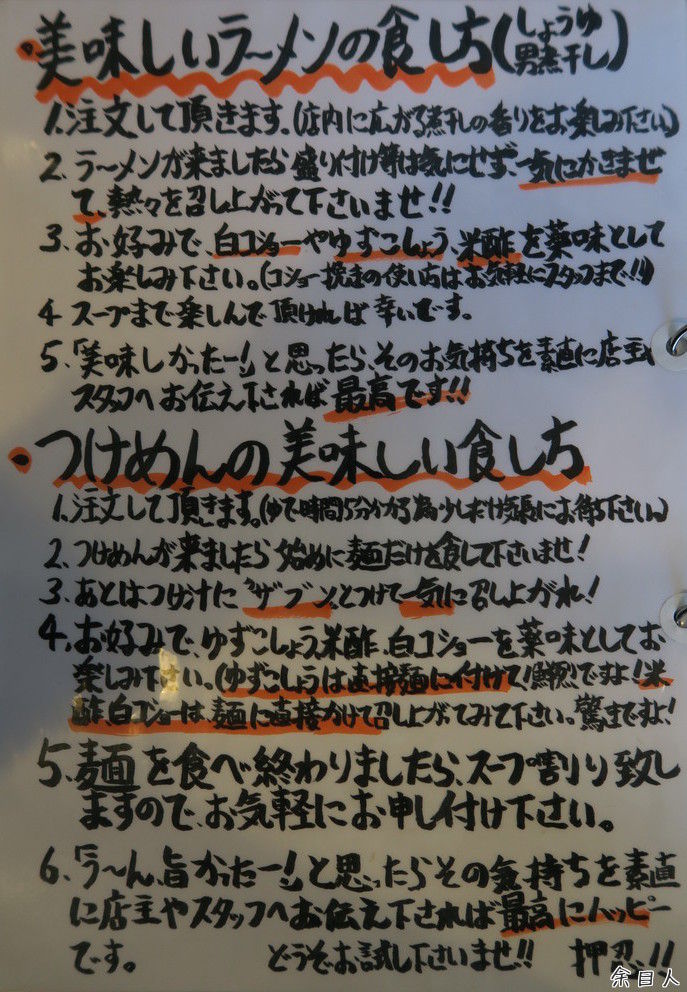 美味しいラーメンの食し方(しょうゆ 男煮干し)
1.注文して頂きます。(店内に広がる煮干しの香りをお楽しみ下さい)
2.ラーメンが来ましたら盛り付け等は気にせず、一気にかきまぜ
て、熱々を召し上がって下さいませ!!
3.お好みで、白コショーやゆずこしょう、米酢を薬味として
お楽しみ下さい。(コショー挽きの使い方はお気軽にスタッフまで!!)
4 スープまで楽しんで頂ければ幸いです。
5.「美味しかったー!」と思ったら、そのお気持ちを素直に店主、
スタッフへお伝え下されば最高です!!
つけめんの美味しい食し方
1.注文して頂きます。(ゆで時間15分かかる為、少しだけ気長にお待ち下さい。)
2.つけめんが来ましたら始めに麺だけを食して下さいませ!
3.あとはつけ汁に"ザブン"とつけて一気に召し上がれ!
4.お好みで、ゆずこしょう、米酢、白コショーを薬味としてお
楽しみ下さい。(ゆずこしょうは直接麺に付けて!鮮烈!ですよ!米
酢、白コショーは、麺に直接かけて召し上がってみて下さい。驚きですよ!
5.麺を食べ終わりましたら、スープ割り致し
ますので、お気軽にお申し付け下さい。
6.「う〜ん、旨かったー!」と思ったらその気持ちを素直
に店主やスタッフへお伝え下されば最高にハッピー
です。 どうぞお試し下さいませ!! 押忍!!
余目人